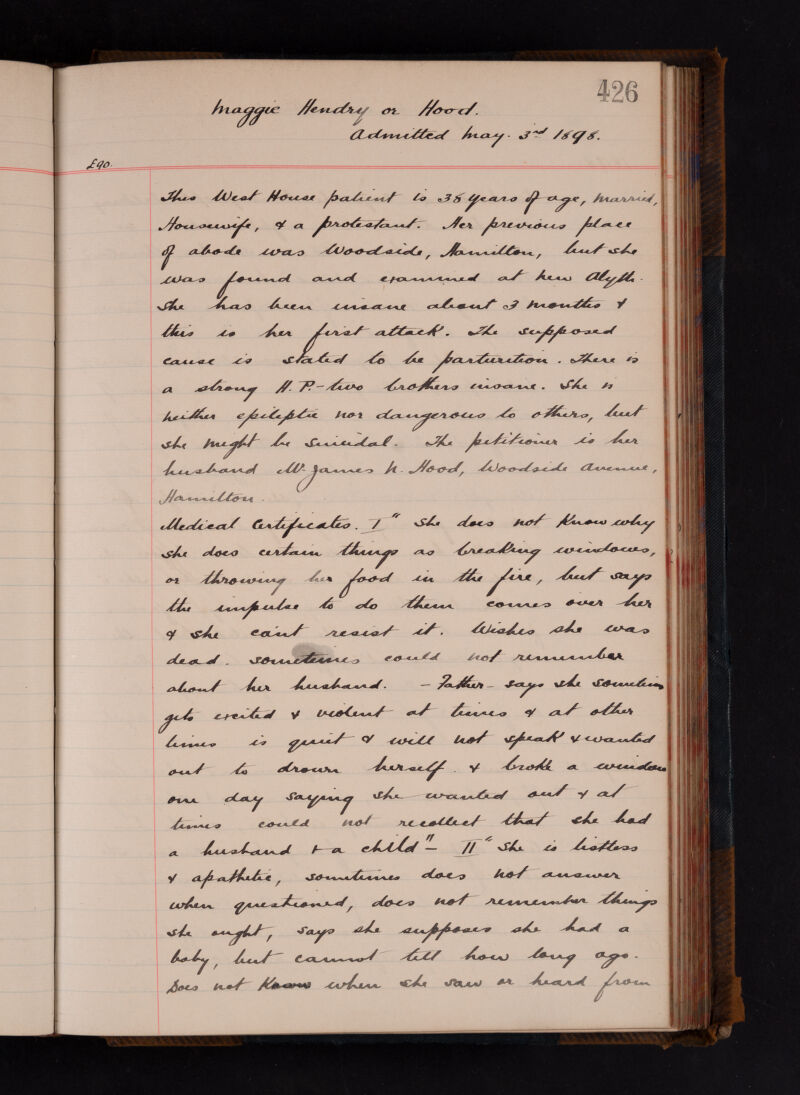 426
Maggie Hendry or Hood.
Admitted May. 3rd 1898.
£90.
This West House patient is 38 years of age, married,
Housewife, & a protestant. Her previous place
of abode was Woodside, Hamilton, but she
was found and examined at New Alyth.
She has been insane about 3 months &
this is her first attack. The supposed
cause is stated to be parturition. There is
a strong H.P. - two brothers insane. She is
neither epileptic nor dangerous to others, but
she might be suicidal. The petitioner is her
husband Mr James N. Hood, Woodside Avenue,
Hamilton.
Medical Certificates. I " She does not know why
she does certain things as breaking windows,
or throwing her food in the fire, but says
the impulse to do them comes over her
& she can't resist it. Wishes she was
dead. sometimes could not remember
about her husband. - Father - says she sometimes
gets excited & violent at times & at other
times is quiet & will not speak & wanted
out to drown herself. & broke a window
one day saying she wanted out & at
times could not recollect that she had
a husband & a child" - II " She is listless
& apathetic, sometimes does not answer
when questioned, does not remember things
she ought, says she supposes she had a
baby, but cannot tell how long ago.
Does not know when she saw or heard from